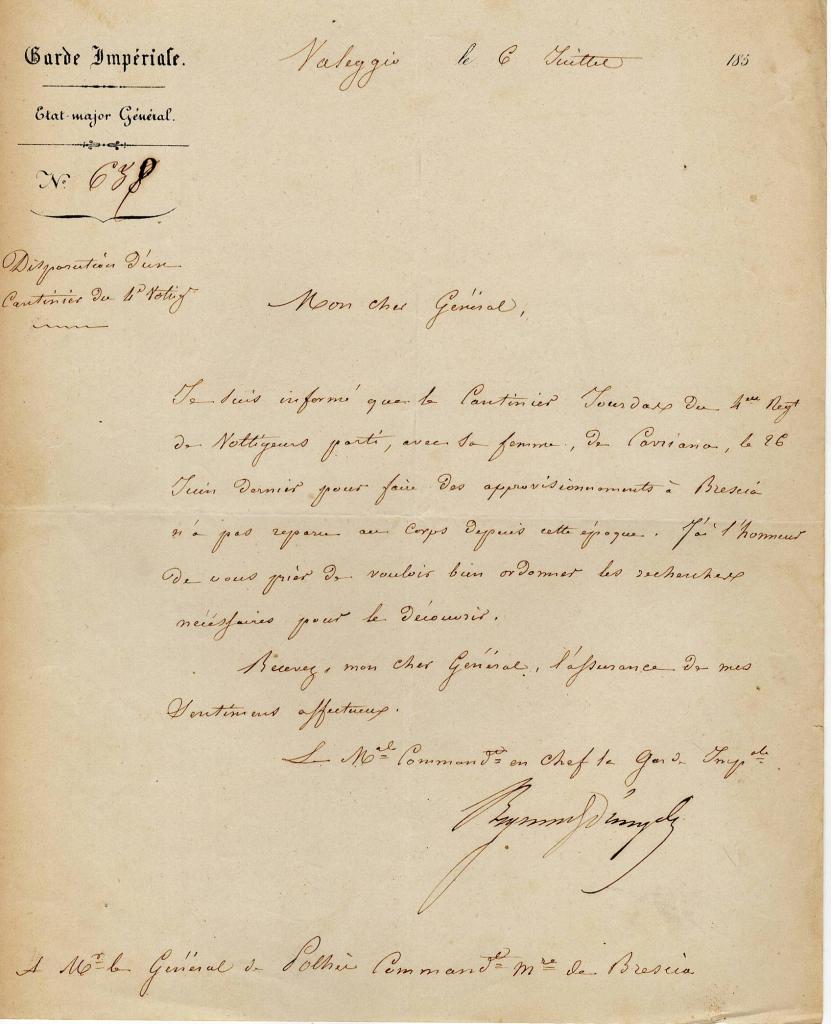 Garde Impériale.
Valeggio le 6 Juillet 185
Etat-major Général.
N° 638
Disparution d'un
Cantinier du 4e Voltig
Mon cher Général,
Je suis informé que le Cantinier Jourdax du 4me Regt
de Voltigeurs parti, avec sa femme, de Cavriana, le 26
Juin dernier pour faire des approvisionnements à Brescia
n'a pas reparu au Corps depuis cette époque. J'ai l'honneur
de vous prier de vouloir bien ordonner les recherches
nécessaires pour le découvrir.
Recevez, mon cher Général, l'assurance de mes
Sentimens affectueux.
Le Mal Commandt en chef la Garde Impale
A Mr le Général de Commandt mre de Brescia